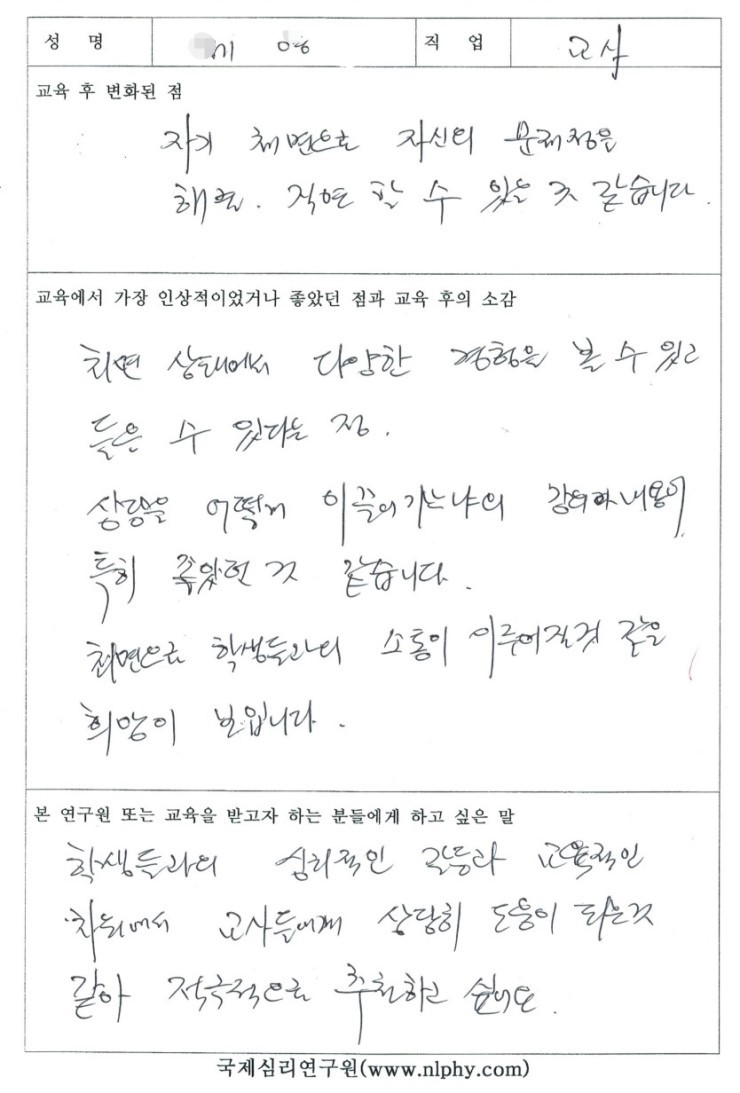 성 명 직 업 교사
교육 후 변화된 점
자기 체면으로 자신의 문제점을
해결. 직면 할 수 있을 것 같습니다.
교육에서 가장 인상적이었거나 좋았던 점과 교육 후의 소감
최면 상태에서 다양한 경험을 볼 수 있고
들은 수 있다는 점.
상담을 어떻게 이끌어가느냐의 강의와 내용이
특히 좋았던 것 같습니다.
최면으로 학생들과의 소통이 이루어질것 같은
희망이 보입니다.
본 연구원 또는 교육을 받고자 하는 분들에게 하고 싶은 말
학생들과의 심리적인 갈등과 교육적인
차원에서 교사들에게 상당히 도움이 되는것
같아 적극적으로 추천하고 싶네요.
국제심리연구원(www.nlphy.com)